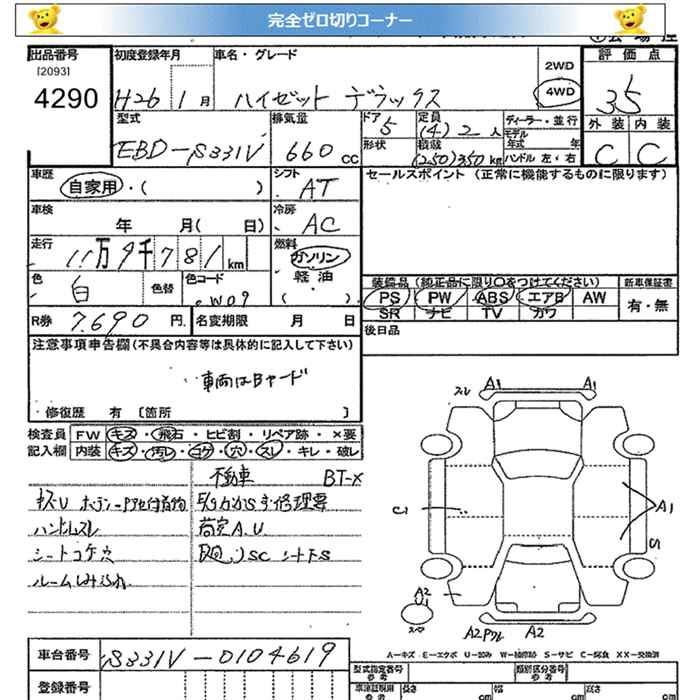 完全ゼロ切りコーナー
出品番号
[2093]
4290
初度登録年月
H26 1 月
車名・グレード
ハイゼット デラックス
2WD
4WD
評価点
3.5
外装 内装
C C
型式
EBD-S331V
排気量
660 cc
ドア
5
形状
定員
(4) 2 人
積載
(250) 350 kg
ディーラー・並行
モデル
年式 年
ハンドル 左・右
車歴
自家用・( )
シフト
AT
セールスポイント (正常に機能するものに限ります)
車検
年 月( 日)
冷房
AC
走行
11万9千781 km
燃料
ガソリン
軽油
( )
色
白
色替
色コード
W09
装備品 (純正品に限り〇をつけてください)
新車保証書
PS PW ABS エアB AW
SR ナビ TV カワ
有・無
R券
7.690 円
名変期限 月 日
後日品
注意事項申告欄 (不具合内容等は具体的に記入して下さい)
車両はBヤード
・修復歴 有 [箇所 ]
検査員
記入欄
FW キズ・飛石・ヒビ割・リペア跡・×要
内装 キズ・汚レ・コゲ・穴・スレ・キレ・破レ
不動車 BT-X
ハンドルスレ
荷定A.U
シートコゲ穴
ルームしみよごれ
スレ A1 A1
C1
A1
A2
U1
A2 A2
A-キズ E-エクボ U-凹み W-補修跡 S-サビ C-腐食 XX-交換済
車台番号
S331V-0104619
登録番号
型式指定番号
参考
類別区分番号
参考
長さ
cm
幅
cm
高さ
cm